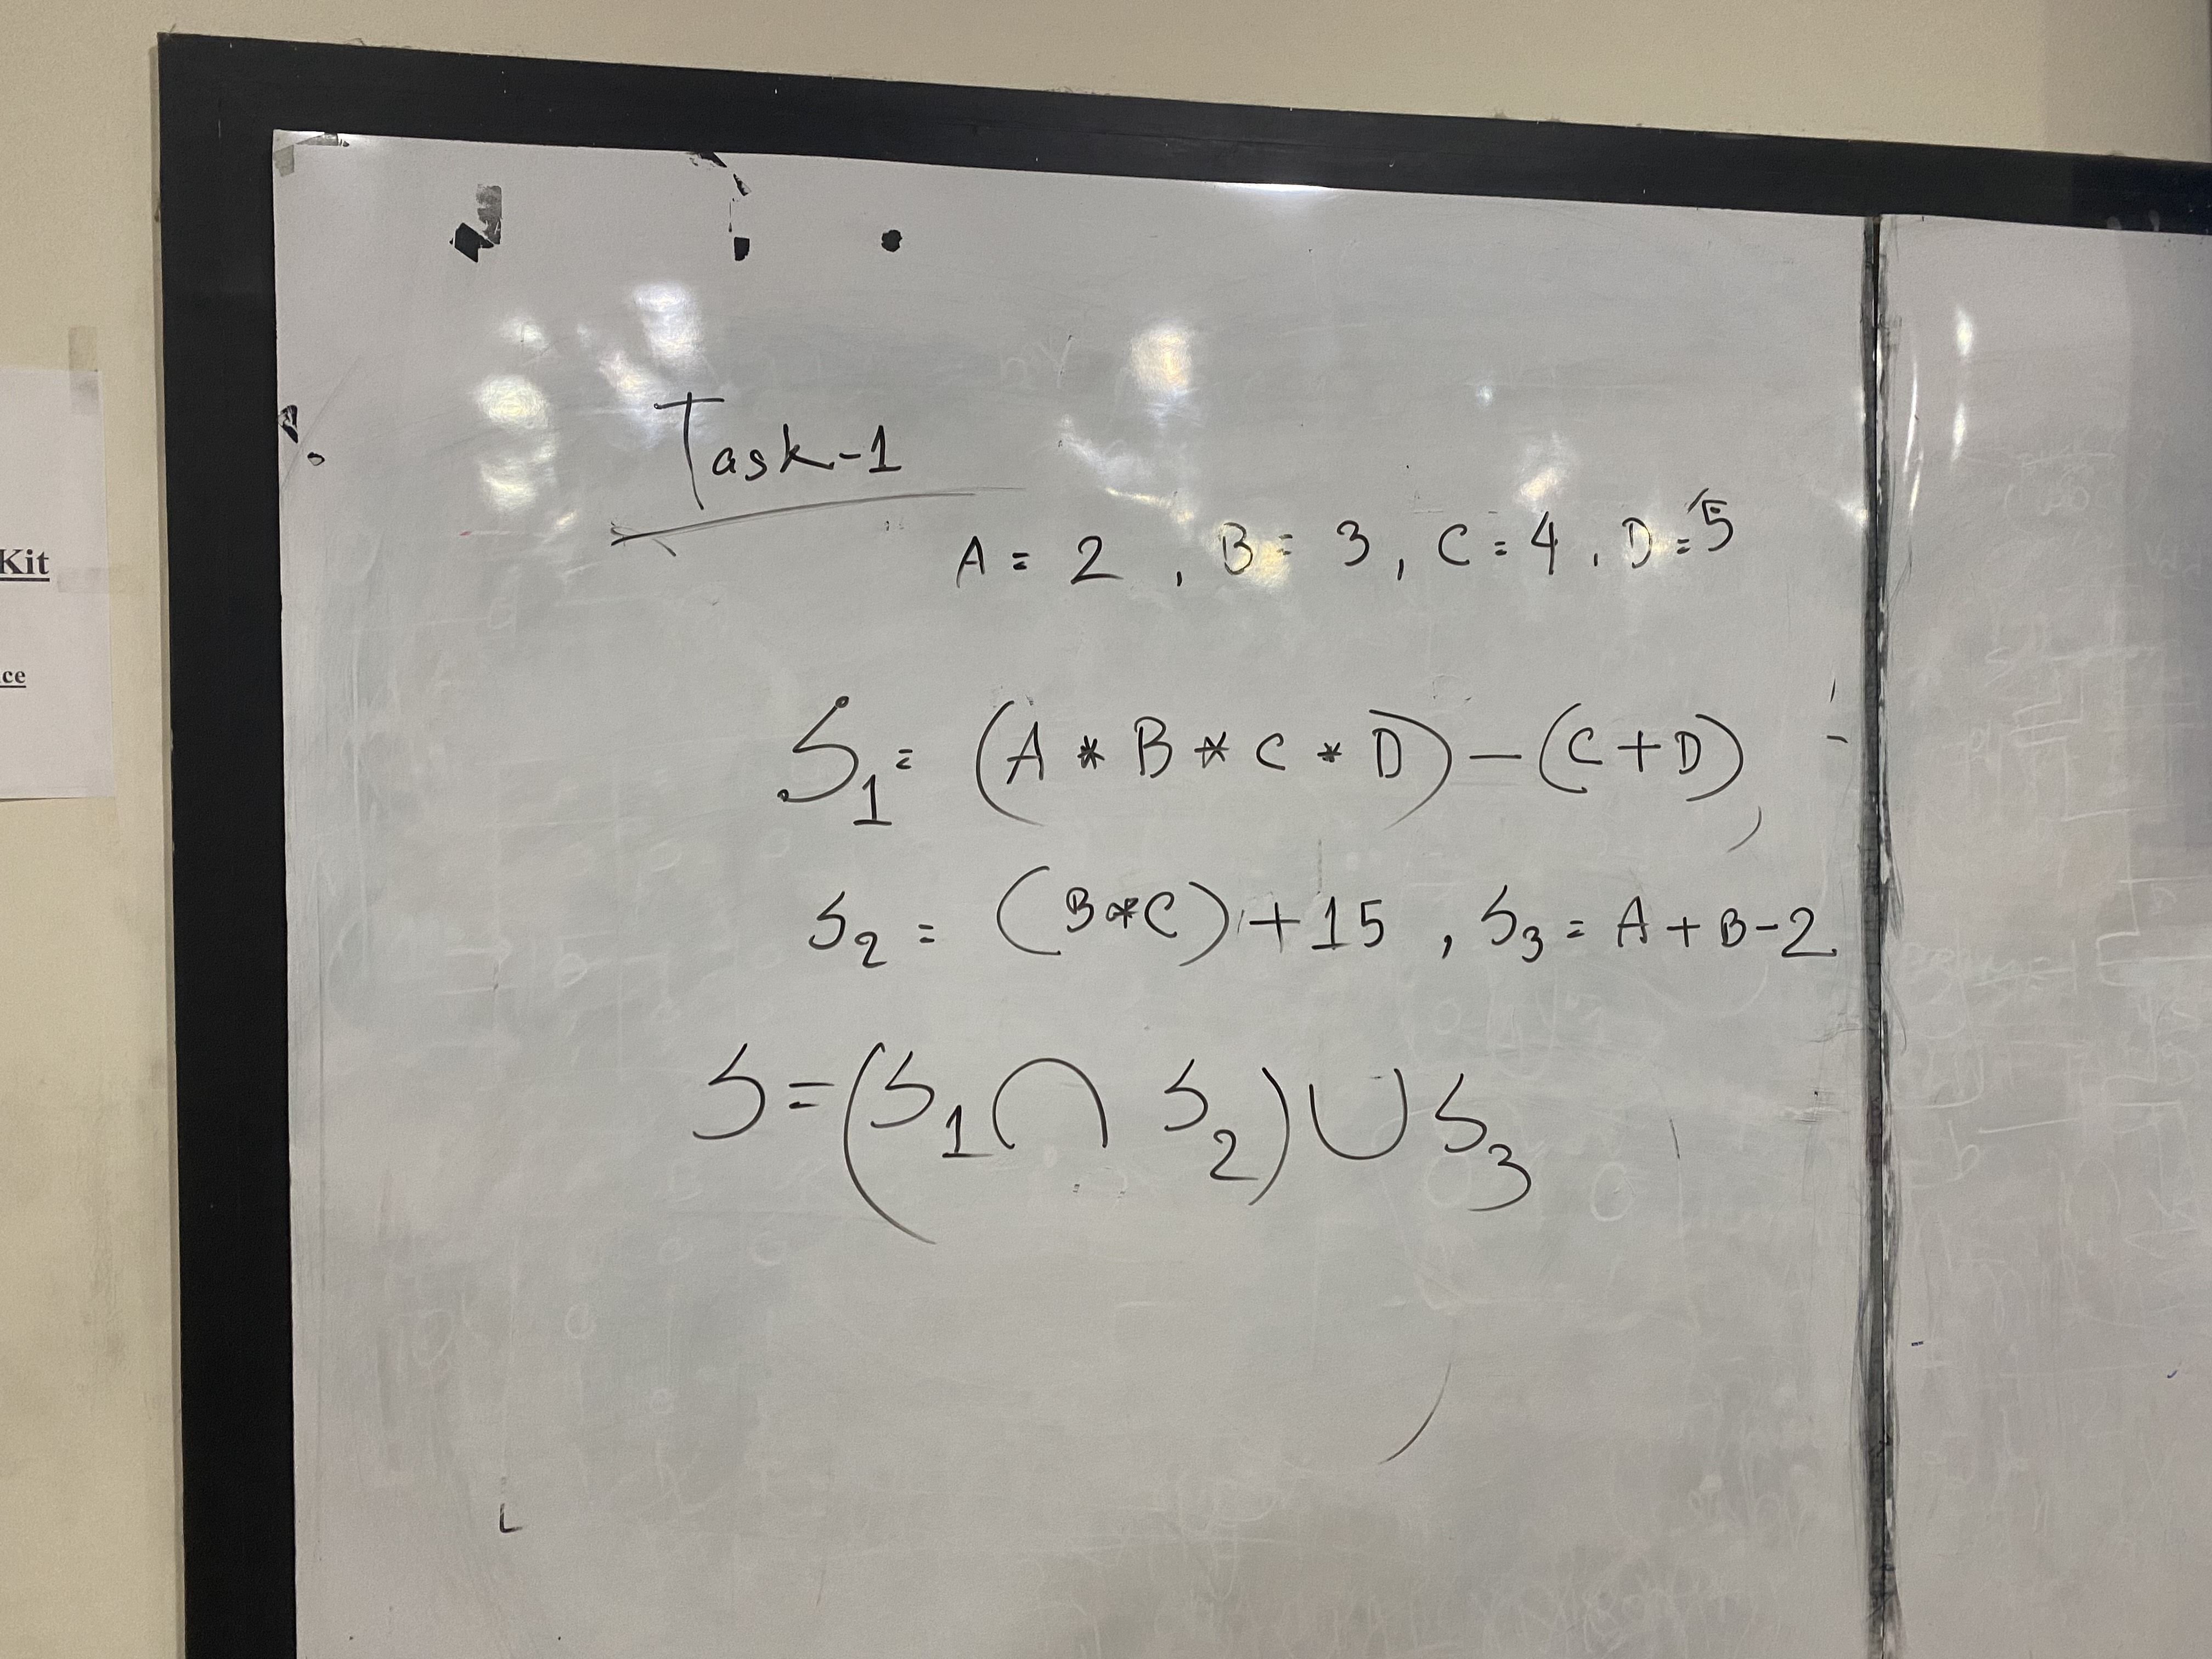 Kit
ce
Task-1
A = 2 , B = 3 , C = 4 , D = 5
S1 = (A * B * C * D) - (C + D) ,
S2 = (B * C) + 15 , S3 = A + B - 2
S = (S1 ∩ S2) ∪ S3